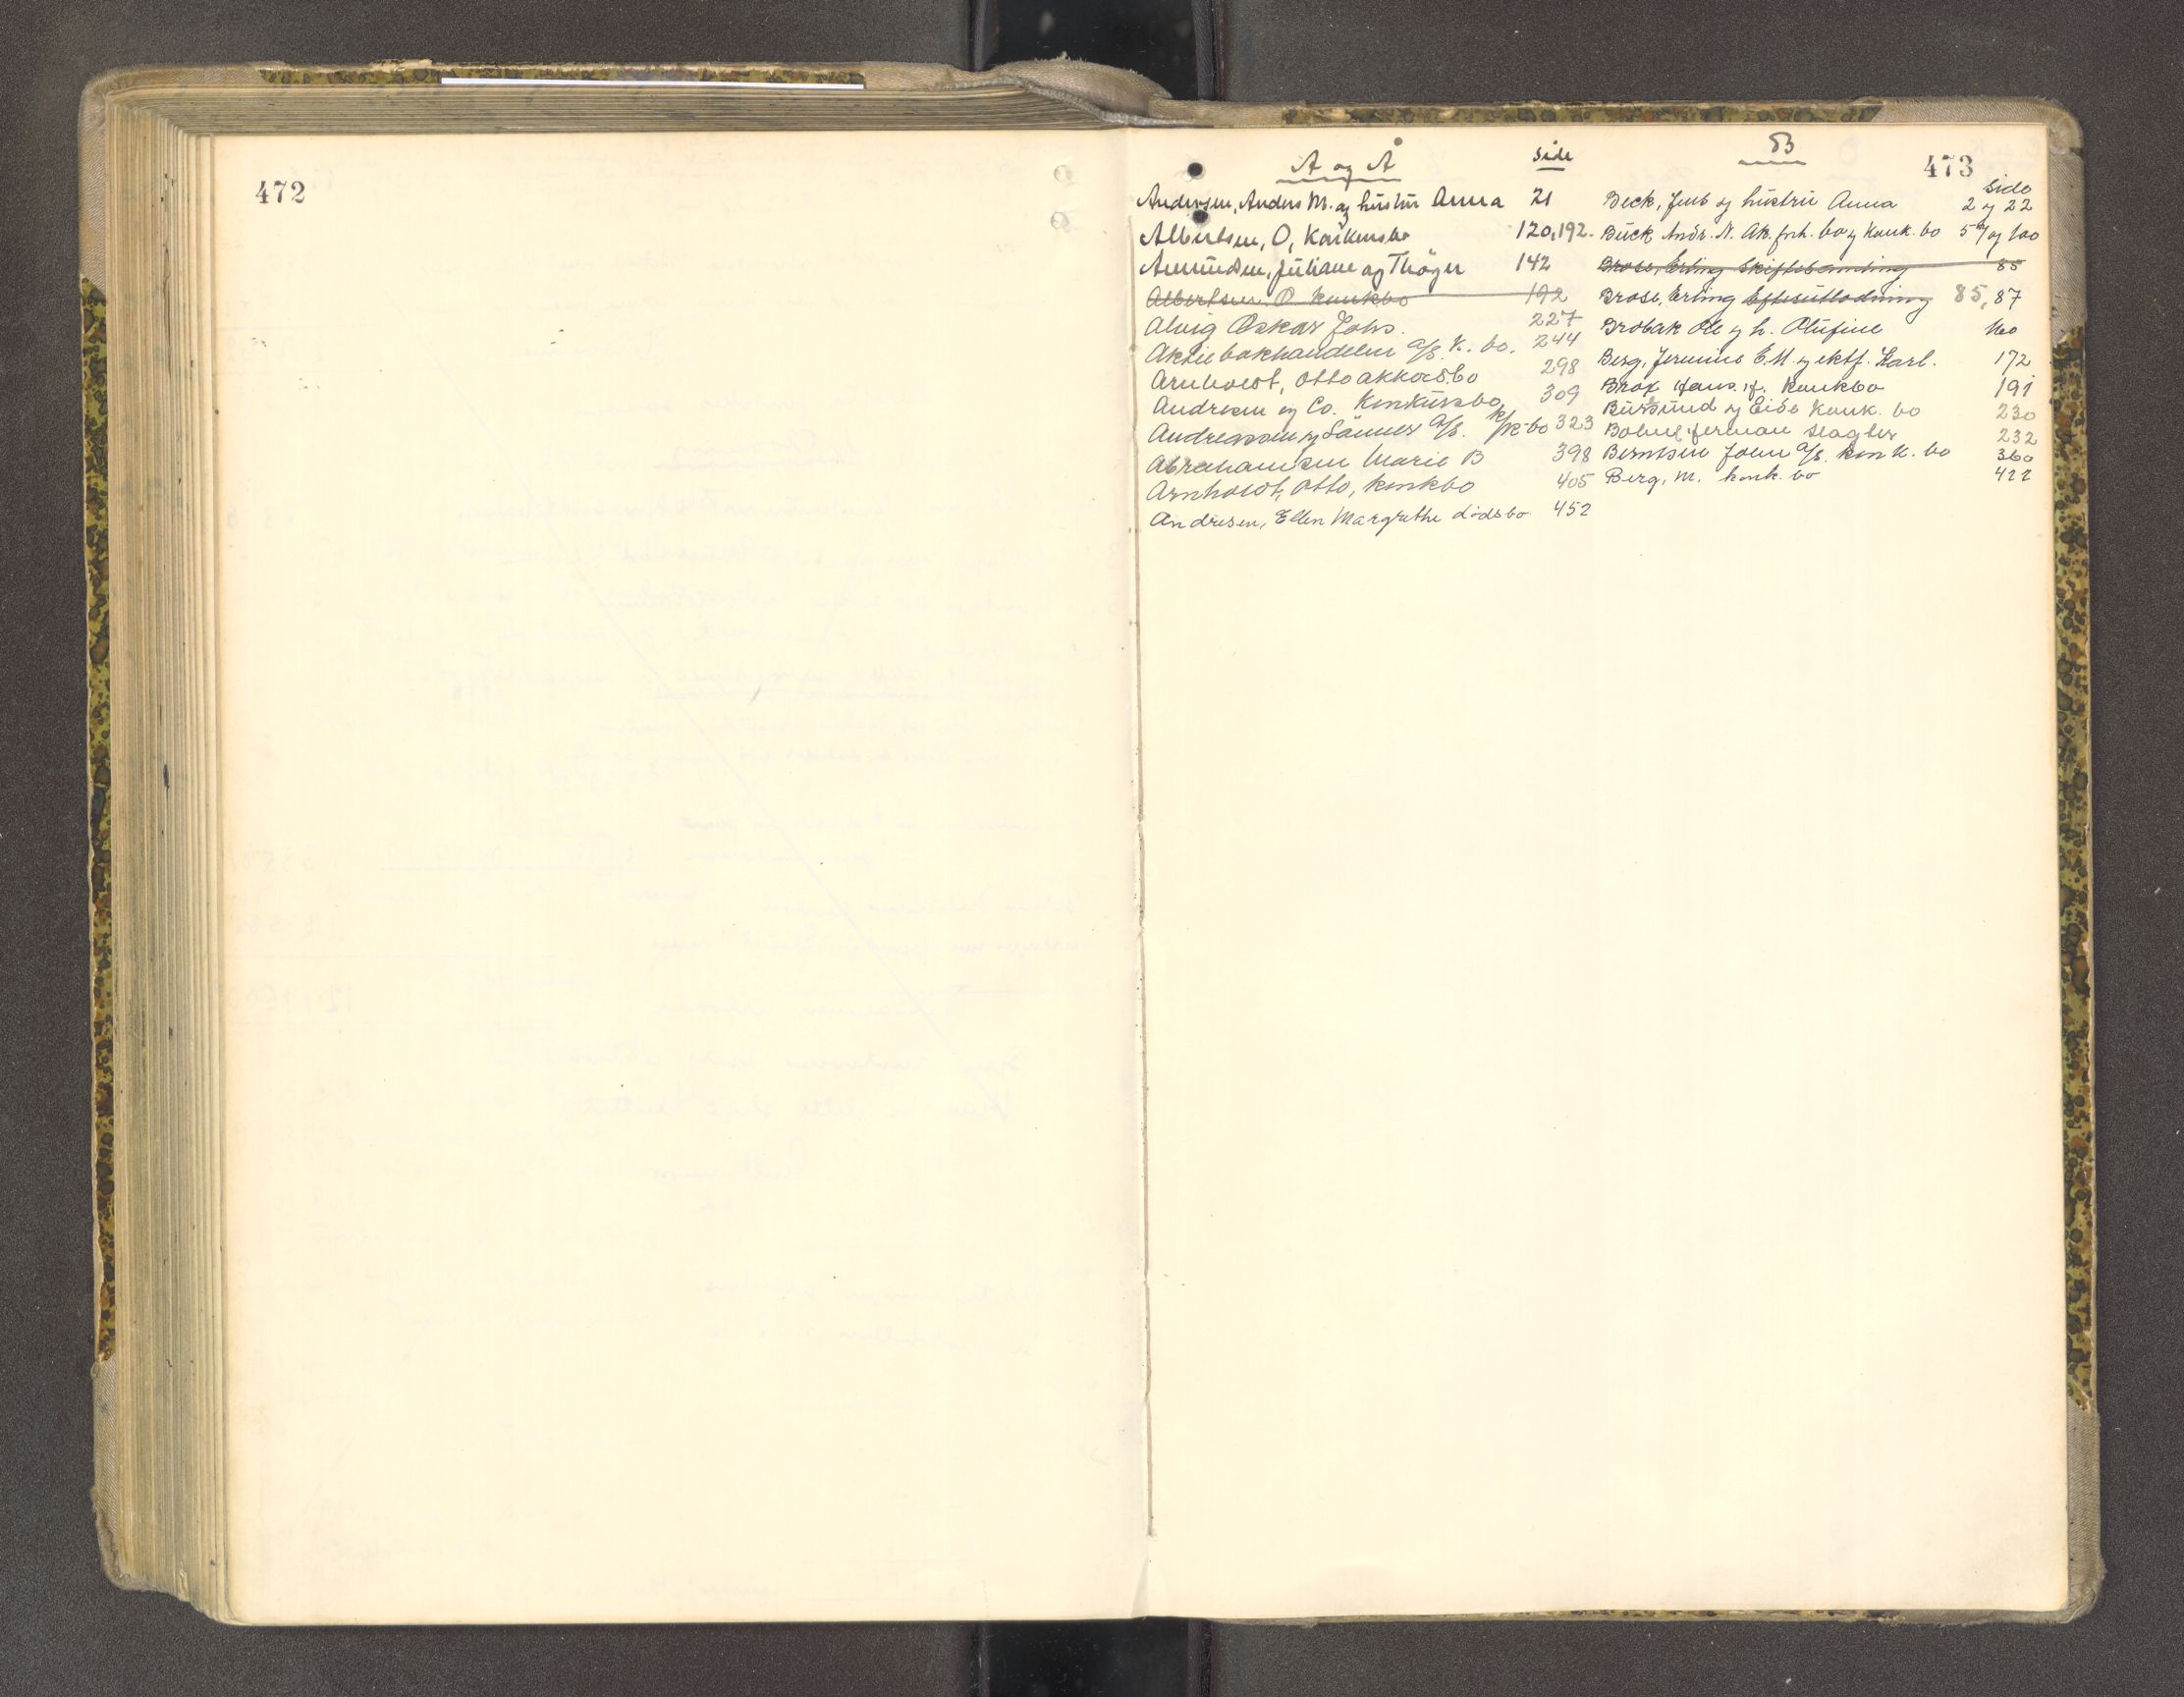 472
473
A og Å side
Andersen, Anders M. og hustru Anna 21
Albertsen, O, Konkursbo 120,192.
Amundsen, Juliane og Thöger 142
Albertsen O konkbo 192
Alvig Oskar Johs. 227
Aktiebokhandelen A/S. K. bo. 244
Arnholdt, Otto akkordbo 298
Andresen og Co. Konkursbo 309
Andreassen og Sønner A/S. K-bo 323
Abrahamsen Marie B 398
Arnholdt, Otto, konkbo 405
Andresen, Ellen Margrethe dødsbo 452
B
side
Beck, Jens og hustru Anna 2 og 22
Buck Andr. N. Ak. forh. bo og Konk. bo
Brose, Erling Skiftesamling 85
Brose, Erling Efterutlodning 85, 87
Brobak Ole og h. Olufine
Berg, E.M. og ektf. Karl. 172
Brox Hans, Konkbo 191
Bursund og Eide Konk. bo 230
Herman Slagter 232
Berntsen John A/S. Konk. bo 360
Berg, M. konk. bo 422